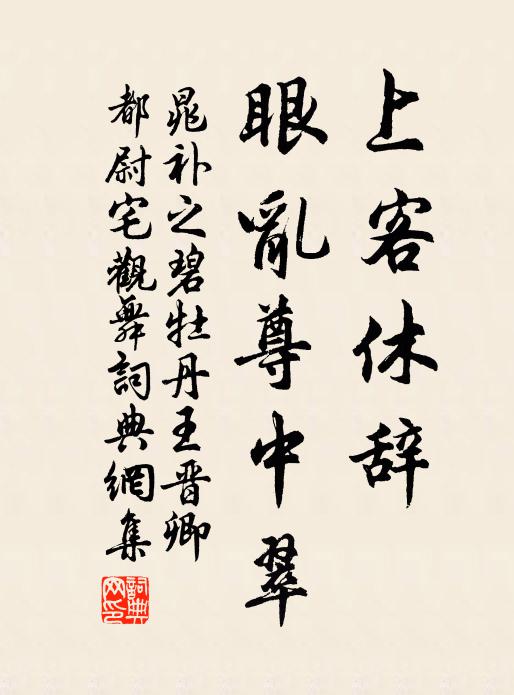 上客休辞
眼亂尊中翠
晁补之碧牡丹王晋卿
都尉宅觀舞詞典網集
詞典网印